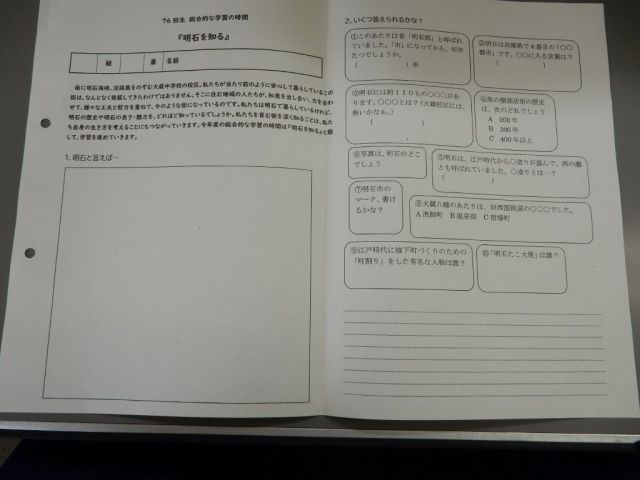 76回生 総合的な学習の時間
『明石を知る』
組 番 名前
南に明石海峡、淡路島をのぞむ大蔵中学校の校区。私たちが当たり前のように安心して暮らしているこの
街は、なんとなく発展してきたわけではありません。そこに住む地域の人たちが、知恵を出し合い、力を合わ
せて、様々な工夫と努力を重ねて、今のような街になっているのです。私たちは明石で暮らしているけれど、
明石の歴史や明石の良さ・魅力を、どれほど知っているでしょうか。私たちを育む街を深く知ることは、私た
ち自身の生き方を考えることにもつながっていきます。今年度の総合的な学習の時間は『明石を知る』と題
して、学習を進めていきます。
1. 明石と言えば…
2. いくつ答えられるかな?
①このあたりは昔「明石郡」と呼ばれ
ていました。「市」になってから、何年
たつでしょうか。
( )年
②明石は兵庫県で4番目の「〇〇
都市」です。〇〇に入る言葉は?
( )
③明石には約110もの〇〇〇があ
ります。〇〇〇とは?(大蔵校区には、
無いかなぁ。)
( )
④魚の棚商店街の歴史
は、次のどれでしょう
A 200年
B 300年
C 400年以上
⑥写真は、明石のどこ
でしょう
⑤明石は、江戸時代から〇造りが盛んで、西の灘
とも呼ばれていました。〇造りとは…?
( )
⑦明石市の
マーク、書け
るかな?
⑧大蔵八幡のあたりは、旧西国街道の〇〇〇でした。
A漁師町 B温泉街 C宿場町
⑨江戸時代に城下町づくりのための
「町割り」をした有名な人物は誰?
⑩「明石たこ大使」は誰?